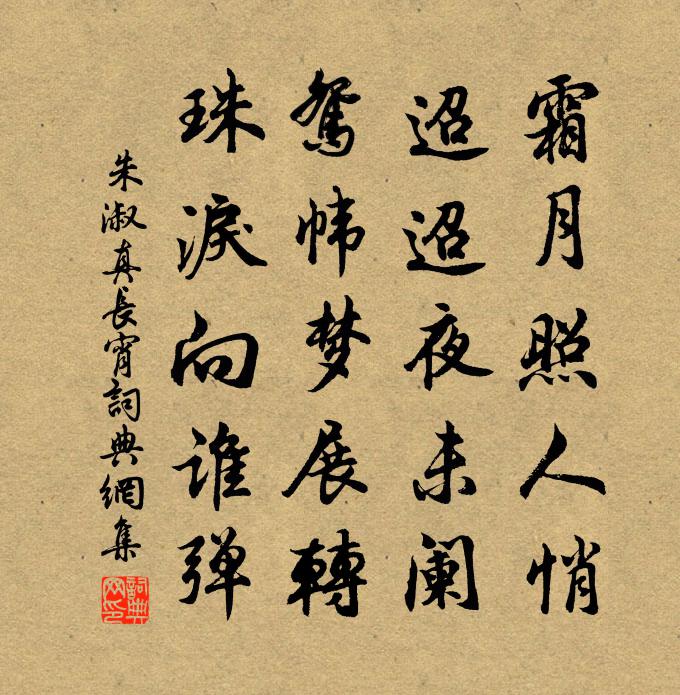 霜月照人悄
迢迢夜未阑
鸳帏梦展轉
珠淚向谁弹
朱淑真長宵詞典網集
詞典网印